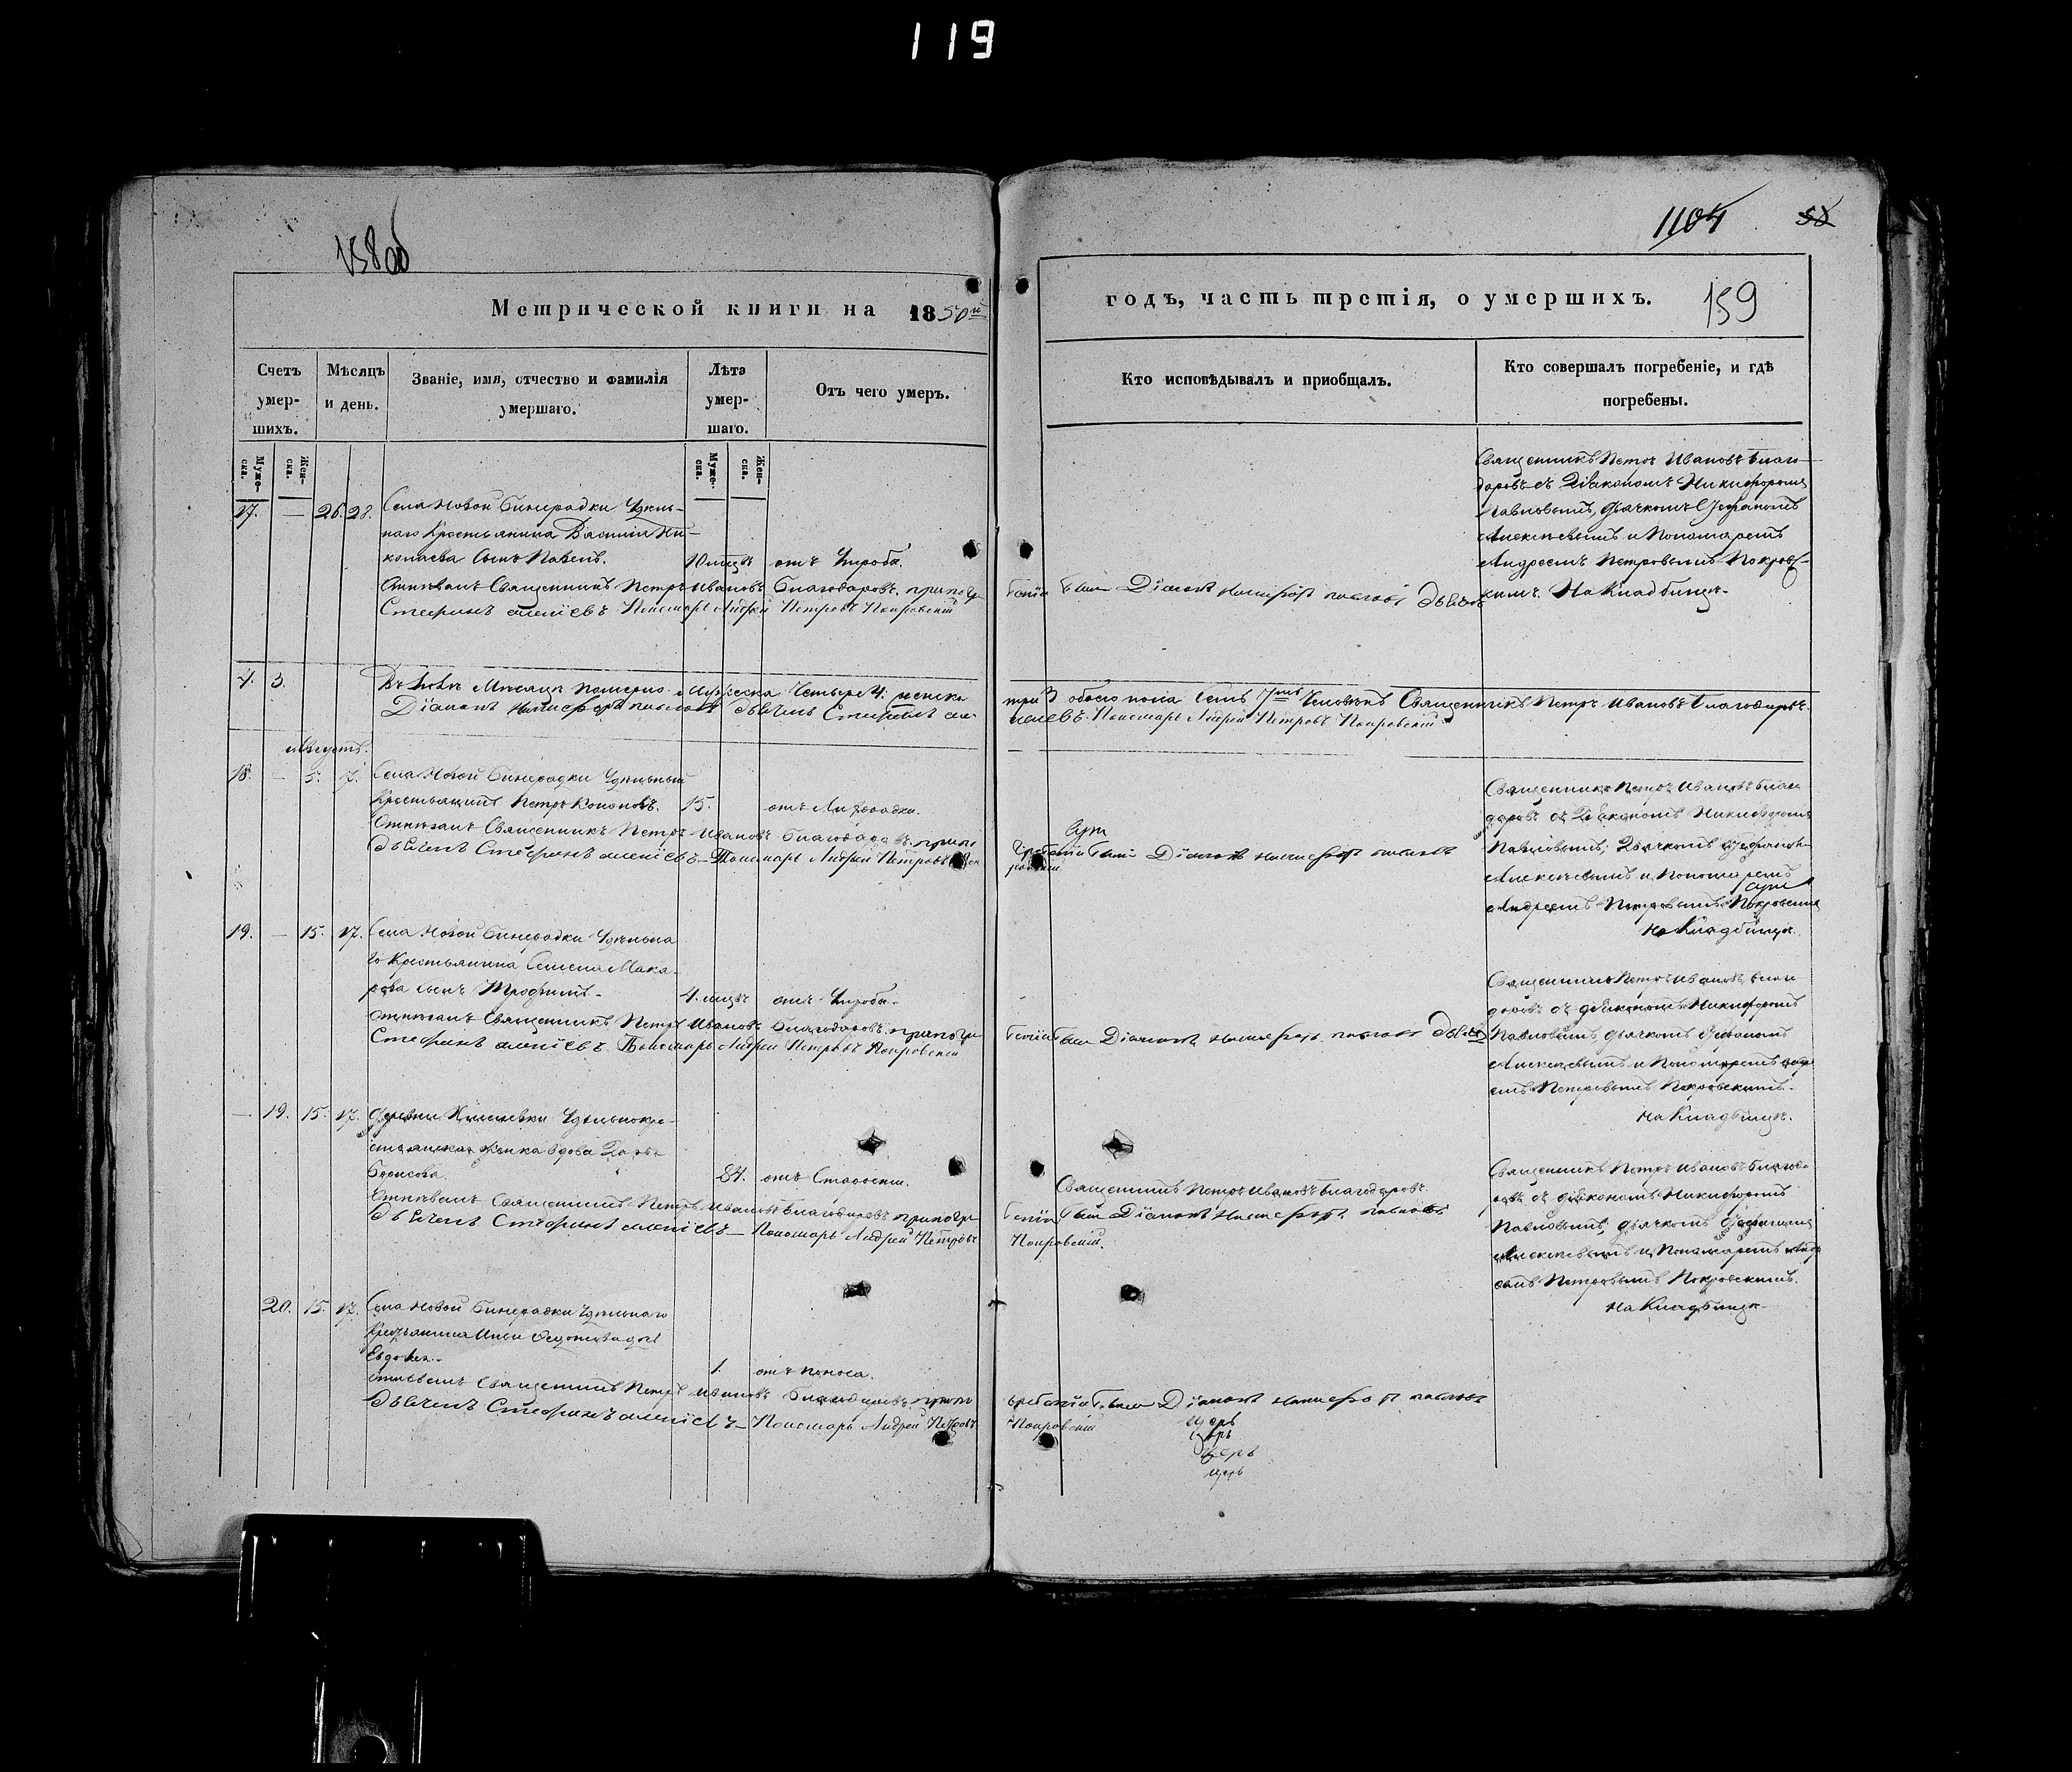 119
158 об
1104 58
Метрической книги на 1850й
годъ, часть третія, о умершихъ. 159
Счетъ умер-шихъ.
Мѣсяцъ и день.
Званіе, имя, отчество и фамилія умершаго.
Лѣта умер-шаго.
Отъ чего умеръ.
Кто исповѣдывалъ и приобщалъ.
Кто совершалъ погребеніе, и гдѣ погребены.
Муже-ска.
Жен-ска.
Муже-ска.
Жен-ска.
17. — 26. 28. Села Новой Бинерадки Удѣль-
наго Крестьянина Василія Ни-
колаева сынъ Павелъ.
10 мцъ отъ Чироба.
Отпѣвалъ Священникъ Петръ Ивановъ Благодаровъ, при погре
Стефанъ Алеѯіевъ Пономарь Андрей Петровъ Покровскій
беніи были Діаконъ Никифоръ Павловъ Дьячекъ
Священникъ Петръ Ивановъ Благо-
даровъ съ Діакономъ Никифоромъ
Павловымъ, Дьячкомъ Стефаномъ
Алексѣевымъ и Пономаремъ
Андреемъ Петровымъ Покровс-
кимъ. На Кладбищѣ.
4. 3. Въ Іюлѣ Мѣсяцѣ померло Мужеска Четыре 4. женска
Діаконъ Никифоръ Павловъ Дьячекъ Стефанъ Але-
три 3 обоего пола семь 7мь Человѣкъ Священникъ Петръ Ивановъ Благодаровъ.
Пономарь Андрей Петровъ Покровскій
Августъ.
18. — 5. 7. Села Новой Бинерадки Удѣльный
Крестьянинъ Петръ Кононовъ.
15. отъ Лихорадки.
Отпѣвалъ Священникъ Петръ Ивановъ Благодаровъ, при по
Дьячекъ Стефанъ Алеѯіевъ — Пономарь Андрей Петровъ
гребеніи были Діаконъ Никифоръ Павловъ
Священникъ Петръ Ивановъ Благо
даровъ съ Діакономъ Никифоромъ
Павловымъ, Дьячкомъ Стефаномъ
Алексѣевымъ и Пономаремъ
Андреемъ Петровымъ Покровскимъ
На Кладбищѣ.
19. — 15. 17. Села Новой Бинерадки Удѣльна
го Крестьянина Семена Мака-
рова сынъ Трофимъ.
4. мцъ отъ Чироба.
Отпѣвалъ Священникъ Петръ Ивановъ Благодаровъ, при погре
Стефанъ Алеѯіевъ. Пономарь Андрей Петровъ Покровскій
беніи были Діаконъ Никифоръ Павловъ Дьячекъ
Священникъ Петръ Ивановъ Благо
даровъ съ Діакономъ Никифоромъ
Павловымъ, Дьячкомъ Стефаномъ
Алексѣевымъ и Пономаремъ Андре
емъ Петровымъ Покровскимъ.
На Кладбищѣ.
— 19. 15. 17. Деревни Удѣльнокре-
стьянская женка вдова Дарья
Борисова.
84. отъ Старости.
Отпѣвалъ Священникъ Петръ Ивановъ Благодаровъ при погре
Дьячекъ Стефанъ Алеѯіевъ — Пономарь Андрей Петровъ
Священникъ Петръ Ивановъ Благодаровъ.
беніи были Діаконъ Никифоръ Павловъ
Покровскій.
Священникъ Петръ Ивановъ Благода-
ровъ съ Діакономъ Никифоромъ
Павловымъ, Дьячкомъ Стефаномъ
Алексѣевымъ и Пономаремъ Андре
емъ Петровымъ Покровскимъ.
На Кладбищѣ.
20. 15. 17. Села Новой Бинерадки Удѣльнаго
Крестьянина Ильи Федотова дочь
Евдокія.
1. отъ поноса.
Отпѣвалъ Священникъ Петръ Ивановъ Благодаровъ, при по
Дьячекъ Стефанъ Алеѯіевъ — Пономарь Андрей Петровъ
гребеніи были Діаконъ Никифоръ Павловъ
Покровскій